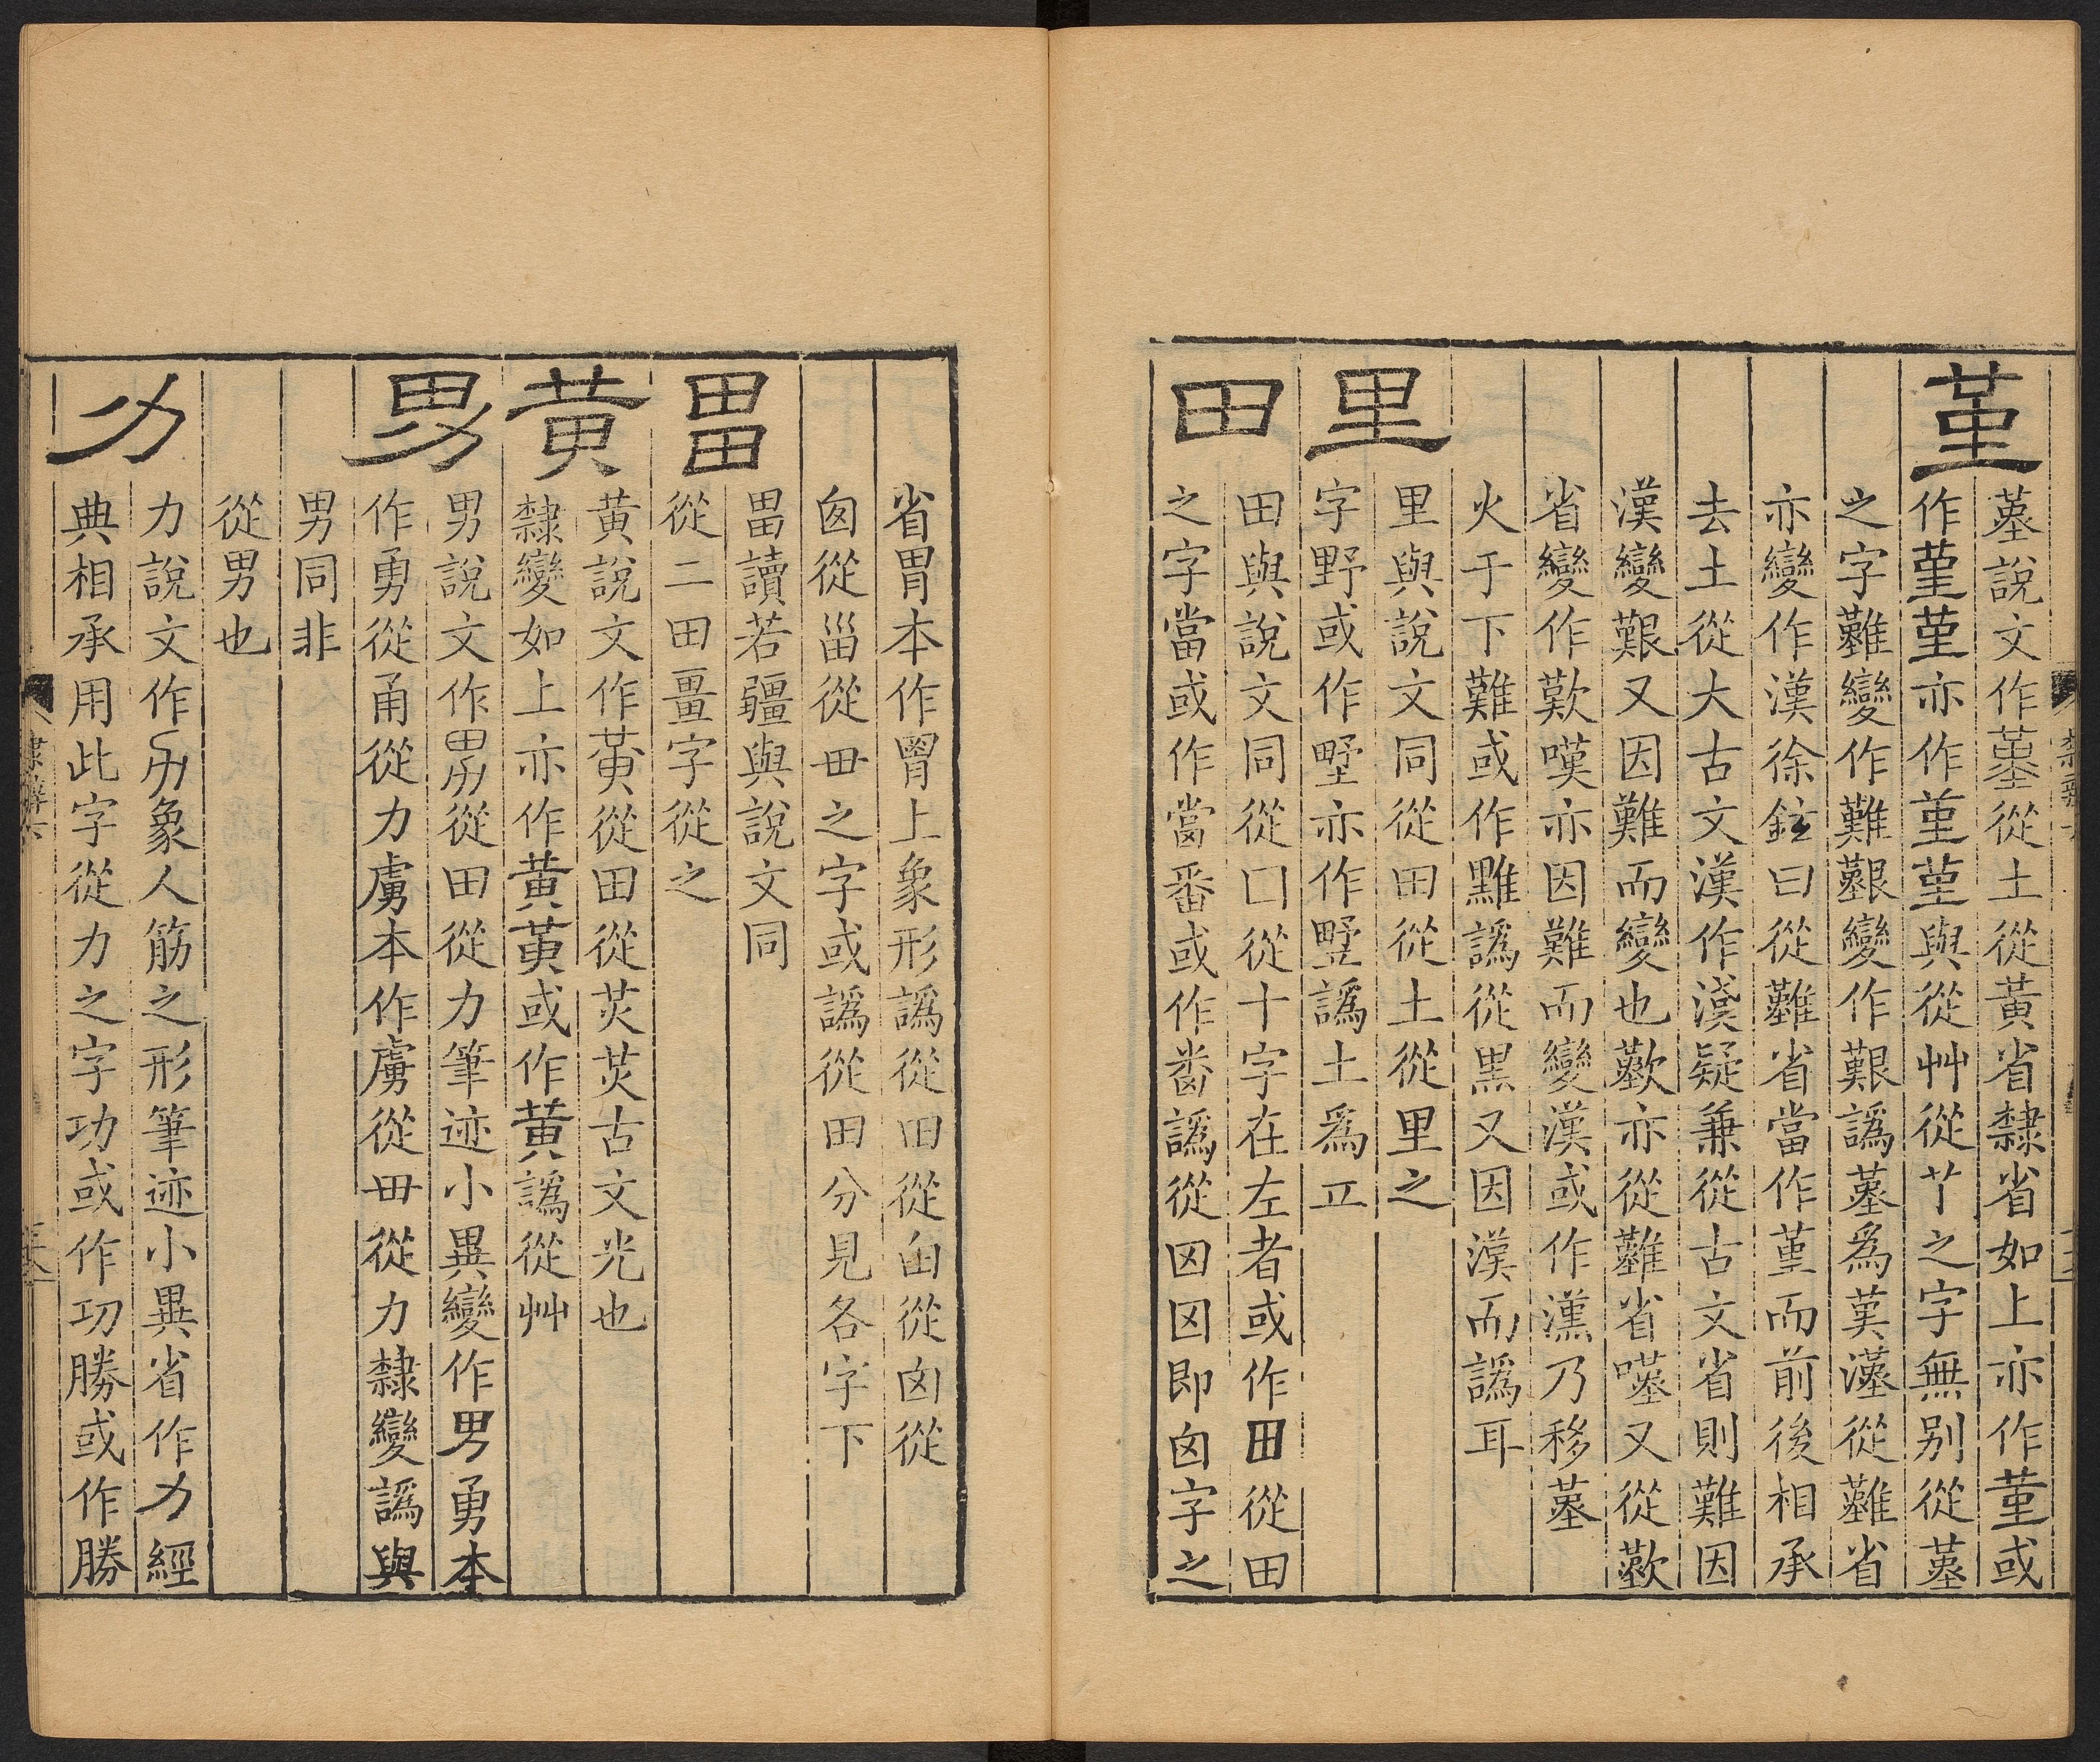 堇
墓說文作墓從土從黃省隸省如上亦作董或
作堇堇亦作堇堇與從艸從丫之字無別從墓
之字難變作難艱變作艱譌墓爲堇漢從難省
亦變作漢徐鉉曰從難省當作堇而前後相承
去土從大古文漢作㵄疑兼從古文省則難因
漢變艱又因難而變也歎亦從難省嘆又從歎
省變作歎嘆亦因難而變漢或作漢乃移墓
火于下難或作難譌從黑又因漢而譌耳
里
里與說文同從田從土從里之
字野或作墅亦作墅譌土爲工
田
田與說文同從囗從十字在左者或作田從田
之字當或作當番或作番譌從囟囟即囟字之
省胃本作䏍上象形譌從田從由從囟從
囪從甾從毌之字或譌從田分見各字下
畕
畕讀若疆與說文同
從二田畺字從之
黃
黃說文作黃從田從炗炗古文光也
隸變如上亦作黃黃或作黃譌從艸
男
男說文作男從田從力筆迹小異變作男勇本
作勇從甬從力虜本作虜從毌從力隸變譌與
男同非
從男也
力
力說文作力象人筋之形筆迹小異省作力經
典相承用此字從力之字功或作功勝或作勝